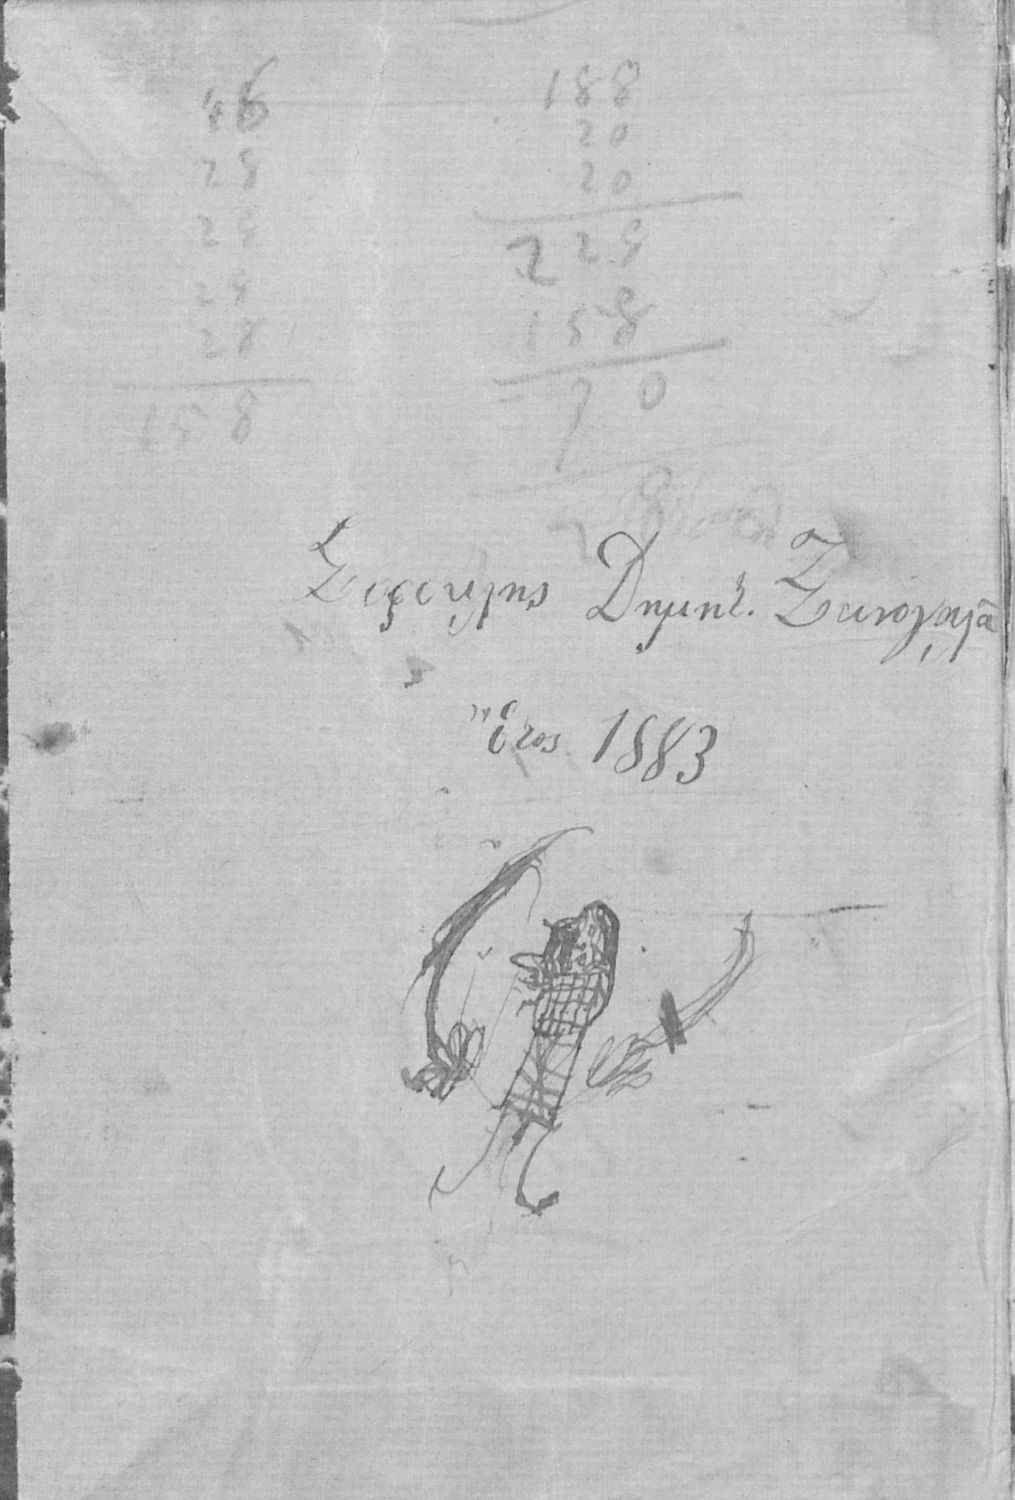 46
28
28
28
28
158
188
20
20
228
158
70
Σοφοκλης Δημητ.
Ἔτος 1883